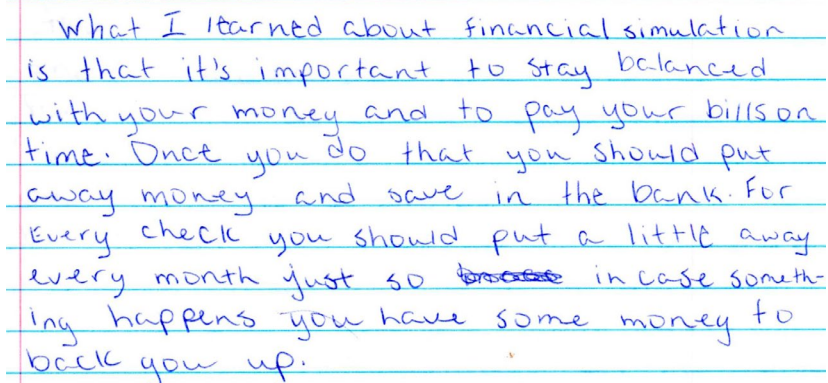 What I learned about financial simulation
is that it's important to stay balanced
with your money and to pay your bills on
time. Once you do that you should put
away money and save in the bank. For
Every check you should put a little away
every month just so in case someth-
ing happens you have some money to
back you up.